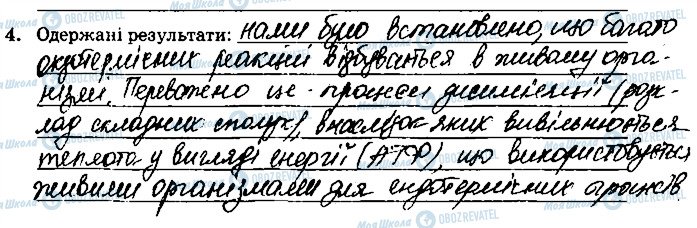 4. Одержані результати: нами було встановлено, що багато
екзотермічних реакцій відбувається в живому орга-
нізмі. Переважено це - процеси дисиміляції (розк-
лад складних сполук), внаслідок яких вивільнюється
теплота у вигляді енергії (АТФ), що використовується
живими організмами для ендотермічних процесів